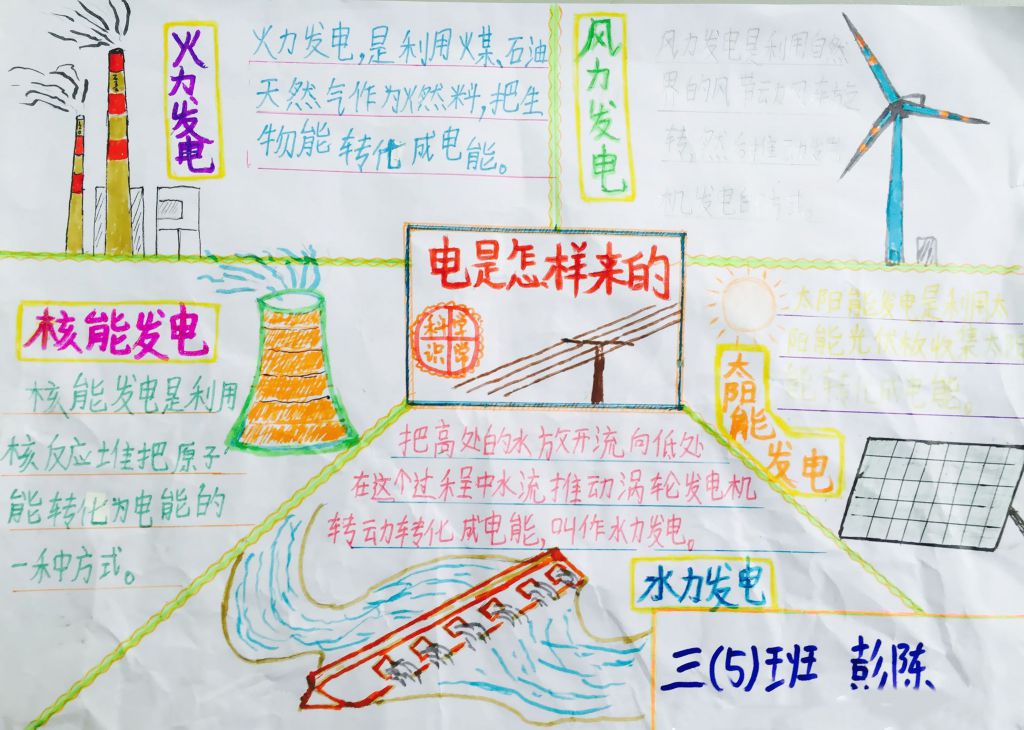 火力发电
火力发电,是利用煤、石油
天然气作为燃料,把生
物能转化成电能。
风力发电
风力发电是利用自然
界的风带动风车旋
转,然后推动发电
机发电的方式。
电是怎样来的
科学
识学
核能发电
核能发电是利用
核反应堆把原子
能转化为电能的
一种方式。
太阳能发电
太阳能发电是利用太
阳能光伏板收集太阳
能转化成电能。
把高处的水放开流向低处
在这个过程中水流推动涡轮发电机
转动转化成电能,叫作水力发电。
水力发电
三(5)班 彭陈